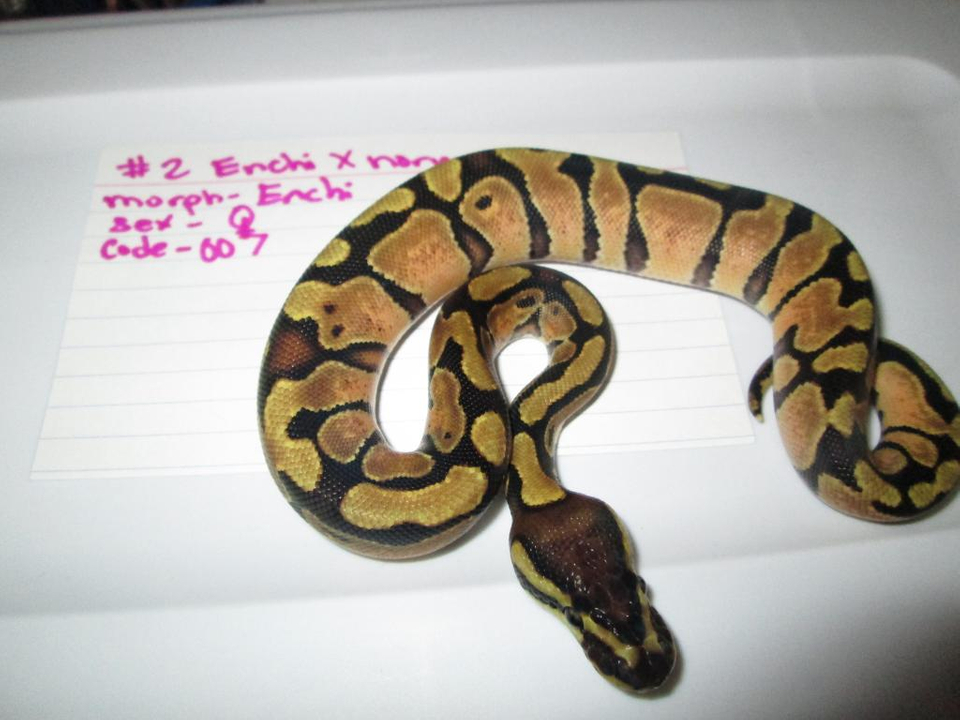 #2 Enchi X norm
morph- Enchi
sex- ♀
Code-007